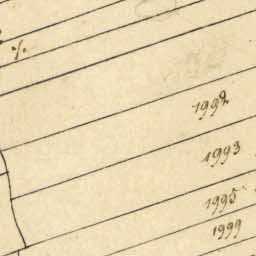 1992
1993
1995
1999